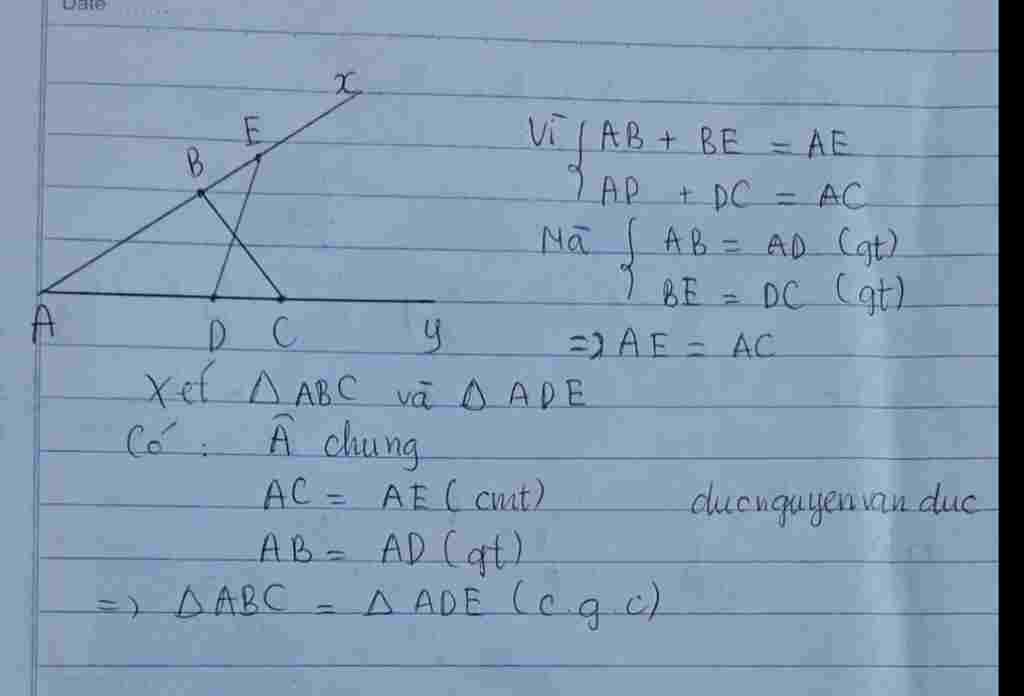 Date
x
E
B
A
D C y
Vì { AB + BE = AE
AD + DC = AC
Mà { AB = AD (gt)
BE = DC (gt)
=> AE = AC
Xét △ ABC và △ ADE
Có : Â chung
AC = AE ( cmt)
ducnguyenvan duc
AB = AD (gt)
=> △ ABC = △ ADE (c.g.c)